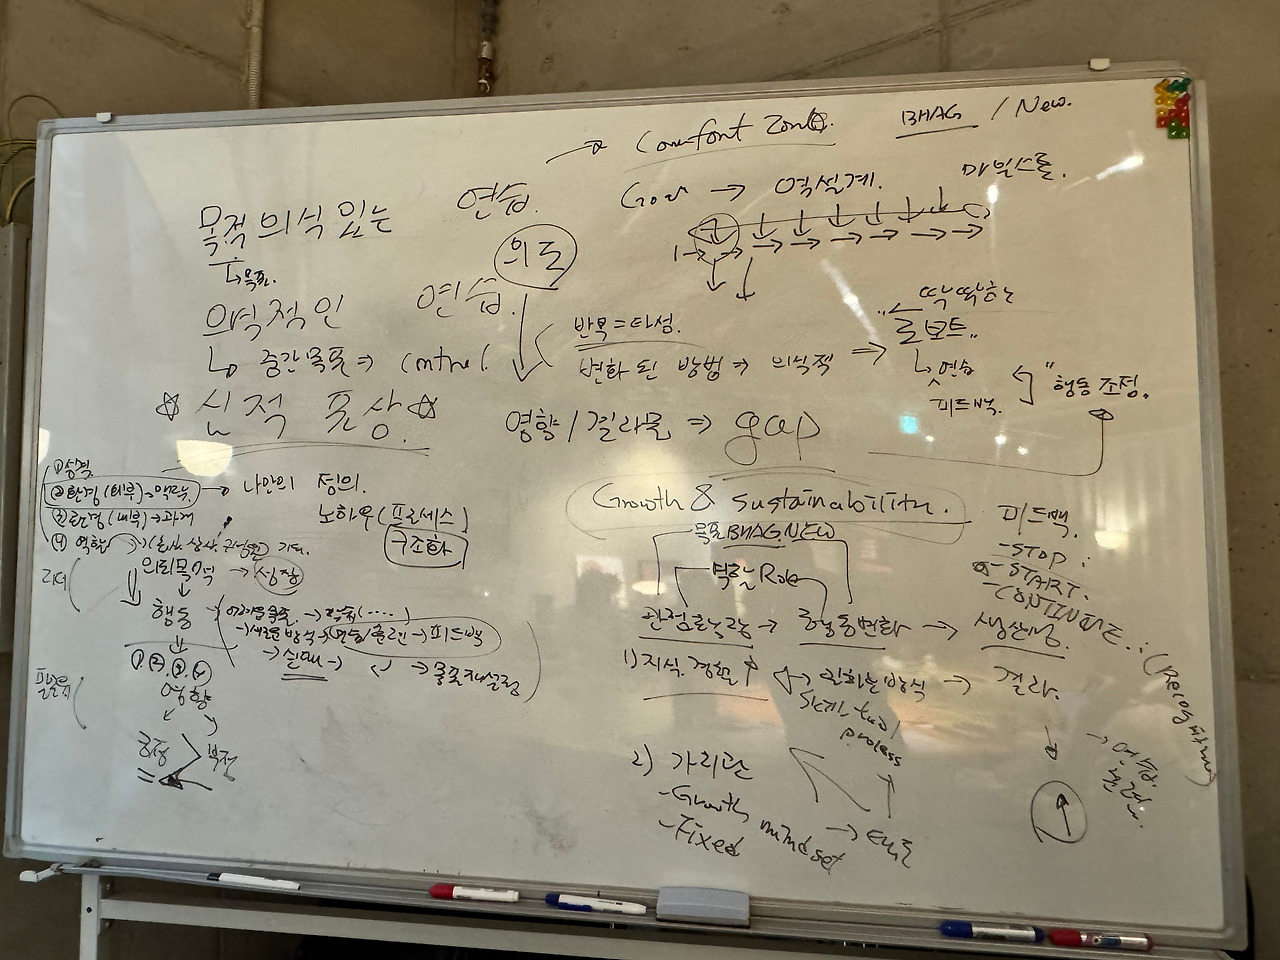 → Comfont Zone.
BHAG / New.
목적의식 있는 연습.
↳ 목표.
Goal → 역설계.
마일스톤.
의도
의식적인 연습.
↳ 중간목표 ⇒ control
반복 = 타성.
변화된 방법 ⇒ 의식적 ⇒
딱딱한
"로보트"
↳ 연습
피드백.
"행동 조정.
☆ 심적 표상 ☆
영향 / 결과물 ⇒ gap
① 성격
② 환경 (외부) → 맥락. → 나만의 정의.
③ 환경 (내부) → 과거
④ 역할 → 상사. 구성원 기대.
노하우 (프로세스)
구조화
의뢰목적 → 성장
리더
행동
→ 새로운방식 → 연습/훈련 → 피드백
→ 실패 → 〃 → 목표재설정
①. ②. ③. ④
영향
긍정
부정
Growth & Sustainability.
목표 BHAG. NEW
역할 Role
관점확장 → 행동변화 → 생산성
1) 지식. 경험 ↑ → 일하는방식 → 결과.
Skill, tool
process
2) 가리관
- Growth mindset → 태도
- Fixed
피드백.
- STOP :
- START.
- CONTINUE . :
(Recognition)
→ 연습.
훈련..